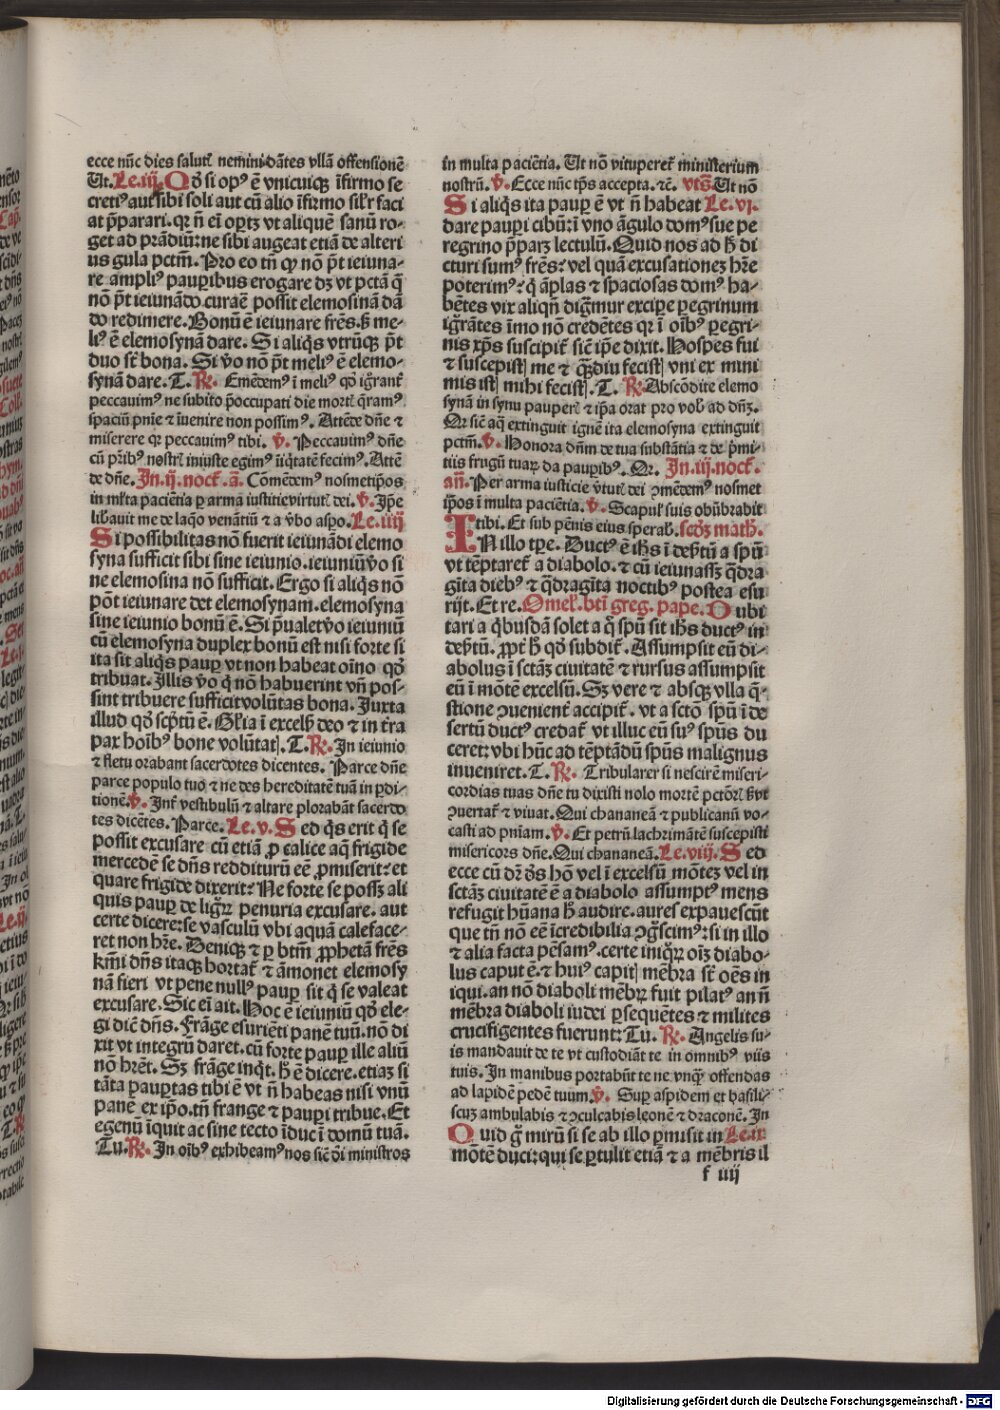 ecce nūc dies salutꝭ nemini dātes vllā offensionē
Ut. Le.iij. Qđ si opꝰ ē vnicuiqꝫ īfirmo se
cretiꝰ aut sibi soli aut cū alio īfirmo silꝛ faci
at p̄parari. qꝛ ñ eī oportꝫ vt aliquē sanū ro-
get ad prādiū: ne sibi augeat etiā de alteri
us gula pctm̄. Pro eo tñ qꝫ nō p̄t ieiuna-
re ampliꝰ pauꝑibus erogare dꝫ vt pctā q̄
nō p̄t ieiunādo curaē possit elemosinā dā
do redimere. Bonū ē ieiunare frēs. ß me-
liꝰ ē elemosynā dare. Si aliq̄s vtrūqꝫ p̄t
duo st̄ bona. Si ṽo nō p̄t meliꝰ ē elemo-
synā dare. T. ℟. Emēdemꝰ ī meliꝰ qđ igrant̄
peccauimꝰ ne subito p̄occupati die mortꝭ q̄ramꝰ
spaciū pnīe ⁊ īuenire non possimꝰ. Attēde dñe ⁊
miserere qꝛ peccauimꝰ tibi. ℣. Peccauimꝰ dñe
cū pr̄ibꝰ nostrꝭ iniuste egimꝰ īiq̄tatē fecimꝰ. Attē
de dñe. In.ij.noct̄. a. Cōmēdemꝰ nosmetip̄os
in ml̄ta paciētia ꝑ arma iustitie virtutꝭ dei. ℣. Ip̄e
lib̄auit me de laq̄o venātiū ⁊ a ṽbo aspo. Le.iiij
Si possibilitas nō fuerit ieiunādi elemo
syna sufficit sibi sine ieiunio. ieiuniū ṽo si
ne elemosina nō sufficit. Ergo si aliq̄s nō
pōt ieiunare det elemosynam. elemosyna
sine ieiunio bonū ē. Si p̄ualet ṽo ieiuniū
cū elemosyna duplex bonū est nisi forte si
ita sit aliq̄s pauꝑ vt non habeat oīno qđ
tribuat. Illis ṽo q̄ nō habuerint vñ pos-
sint tribuere sufficit volūtas bona. Juxta
illud qđ scp̄tū ē. Gl̄ia ī excelß deo ⁊ in t̄ra
pax hoībꝰ bone volūtatꝭ. T. ℟. In ieiunio
⁊ fletu orabant sacerdotes dicentes. Parce dñe
parce populo tuo ⁊ ne des hereditatē tuā in ꝑdi-
tionē. ℣. Int̄ vestibulū ⁊ altare plorabāt sacerdo
tes dicētes. Parce. Le.v. Sed q̄s erit q̄ se
possit excusare cū etiā ꝓ calice aq̄ frigide
mercedē se dñs redditurū eē ꝓmiserit: et
quare frigide dixerit: Ne forte se possꝫ ali
quis pauꝑ de ligꝛ̄ꝝ penuria excusare. aut
certe dicere: se vasculū vbi aquā caleface-
ret non hr̄e. Deniqꝫ ⁊ ꝑ btm̄ ꝓphetā frēs
km̄i dñs itaqꝫ hortat̄ ⁊ āmonet elemosy
nā fieri vt pene nullꝰ pauꝑ sit q̄ se valeat
excusare. Sic eī ait. Hoc ē ieiuniū qđ ele-
gi dic̄ dñs. Frāge esuriēti panē tuū. nō di
xit vt integrū daret. cū forte pauꝑ ille aliū
nō hr̄et. Sꝫ frāge inq̄t. h̄ ē dicere. etiaꝫ si
tāta pauꝑtas tibi ē vt ñ habeas nisi vnū
panē ex ip̄o. tñ frange ⁊ pauꝑi tribue. Et
egenū īquit ac sine tecto īduc ī domū tuā.
Tu. ℟. In oībꝰ exhibeamꝰ nos sic̄ dī ministros
in multa paciētia. Ut nō vituperet̄ ministerium
nostrū. ℣. Ecce nūc tp̄s accepta. ⁊c̄. vts̄. Ut nō
Si aliq̄s ita pauꝑ ē vt ñ habeat Le.vi.
dare pauꝑi cibū: ī vno āgulo domꝰ sue pe
regrino p̄parꝫ lectulū. Quid nos ad h̄ di
cturi sumꝰ frēs: vel quā excusationeꝫ hr̄e
poterimꝰ: q̄ āplas ⁊ spaciosas domꝰ ha-
bētes vix aliqñ digñmur exciꝑe ꝑegrinum
igrātes īmo nō credētes qꝛ ī oībꝰ ꝑegri-
nis xp̄s suscipit̄ sic̄ ip̄e dixit. Hospes fui
⁊ suscepistꝭ me ⁊ qꝫdiu fecistꝭ vni ex mini
mis istꝭ mihi fecistꝭ. T. ℟. Abscōdite elemo
synā in synu pauperꝭ ⁊ ip̄a orat pro vob̄ ad dñꝫ.
Qꝛ sic̄ aq̄ extinguit ignē ita elemosyna extinguit
pctm̄. ℣. Honora dñm de tua substātia ⁊ de p̄mi-
tiis frugū tuaꝝ da pauꝑibꝰ. Qꝛ. In.iij.noct̄.
añ. Per arma iusticie ṽtutꝭ dei ꝯmēdemꝰ nosmet
ip̄os ī multa paciētia. ℣. Scapulꝭ suis obūbrabit
tibi. Et sub pēnis eius sperab̄. scđꝫ math̄.
IN illo tp̄e. Ductꝰ ē ih̄s ī deß̄tū a spū
vt tēptaret̄ a diabolo. ⁊ cū ieiunassꝫ q̄dra
gīta diebꝰ ⁊ q̄dragīta noctibꝰ postea esu
rijt. Et re. Omel̄. bt̄i greg. pape. Dubi
tari a q̄busdā solet a q̄ spū sit ih̄s ductꝰ in
deß̄tū. ꝓpt̄ h̄ qđ subdit̄. Assumpsit eū di-
abolus ī sctāꝫ ciuitatē ⁊ rursus assumpsit
eū ī mōtē excelsū. Sꝫ vere ⁊ absqꝫ vlla q̄-
stione ꝯuenient̄ accipit̄. vt a sctō spū ī de
sertū ductꝰ credat̄ vt illuc eū suꝰ spūs du
ceret: vbi hūc ad tēptādū spūs malignus
inueniret. T. ℟. Tribularer si nescirē miseri-
cordias tuas dñe tu dixisti nolo mortē pctōrꝭ ß vt
ꝯuertat̄ ⁊ viuat. Qui chananeā ⁊ publicanū vo-
casti ad pnīam. ℣. Et petrū lachrimātē suscepisti
misericors dñe. Qui chananeā. Le.viij. Sed
ecce cū dr̄ ds̄ hō vel ī excelsū mōteꝫ vel in
sctāꝫ ciuitatē ē a diabolo assumptꝰ mens
refugit hūana h̄ audire. aures expauescūt
que tñ nō eē īcredibilia ꝯgscimꝰ: si in illo
⁊ alia facta pēsamꝰ. certe iniq̄ꝝ oīꝫ diabo-
lus caput ē. ⁊ huiꝰ capitꝭ mēbra st̄ oēs in
iqui. an nō diaboli mēbꝝ fuit pilatꝰ an ñ
mēbra diaboli iudei ꝑsequētes ⁊ milites
crucifigentes fuerunt: Tu. ℟. Angelis su-
is mandauit de te vt custodiāt te in omnibꝰ viis
tuis. In manibus portabūt te ne vnqꝫ offendas
ad lapidē pedē tuum. ℣. Suꝑ aspidem et basili-
scuꝫ ambulabis ⁊ ꝯculcabis leonē ⁊ draconē. In
Quid g̊ mirū si se ab illo ꝑmisit in Le.ix
mōtē duci: qui se ꝑtulit etiā ⁊ a mēbris il
f iiij
Digitalisierung gefördert durch die Deutsche Forschungsgemeinschaft - DFG